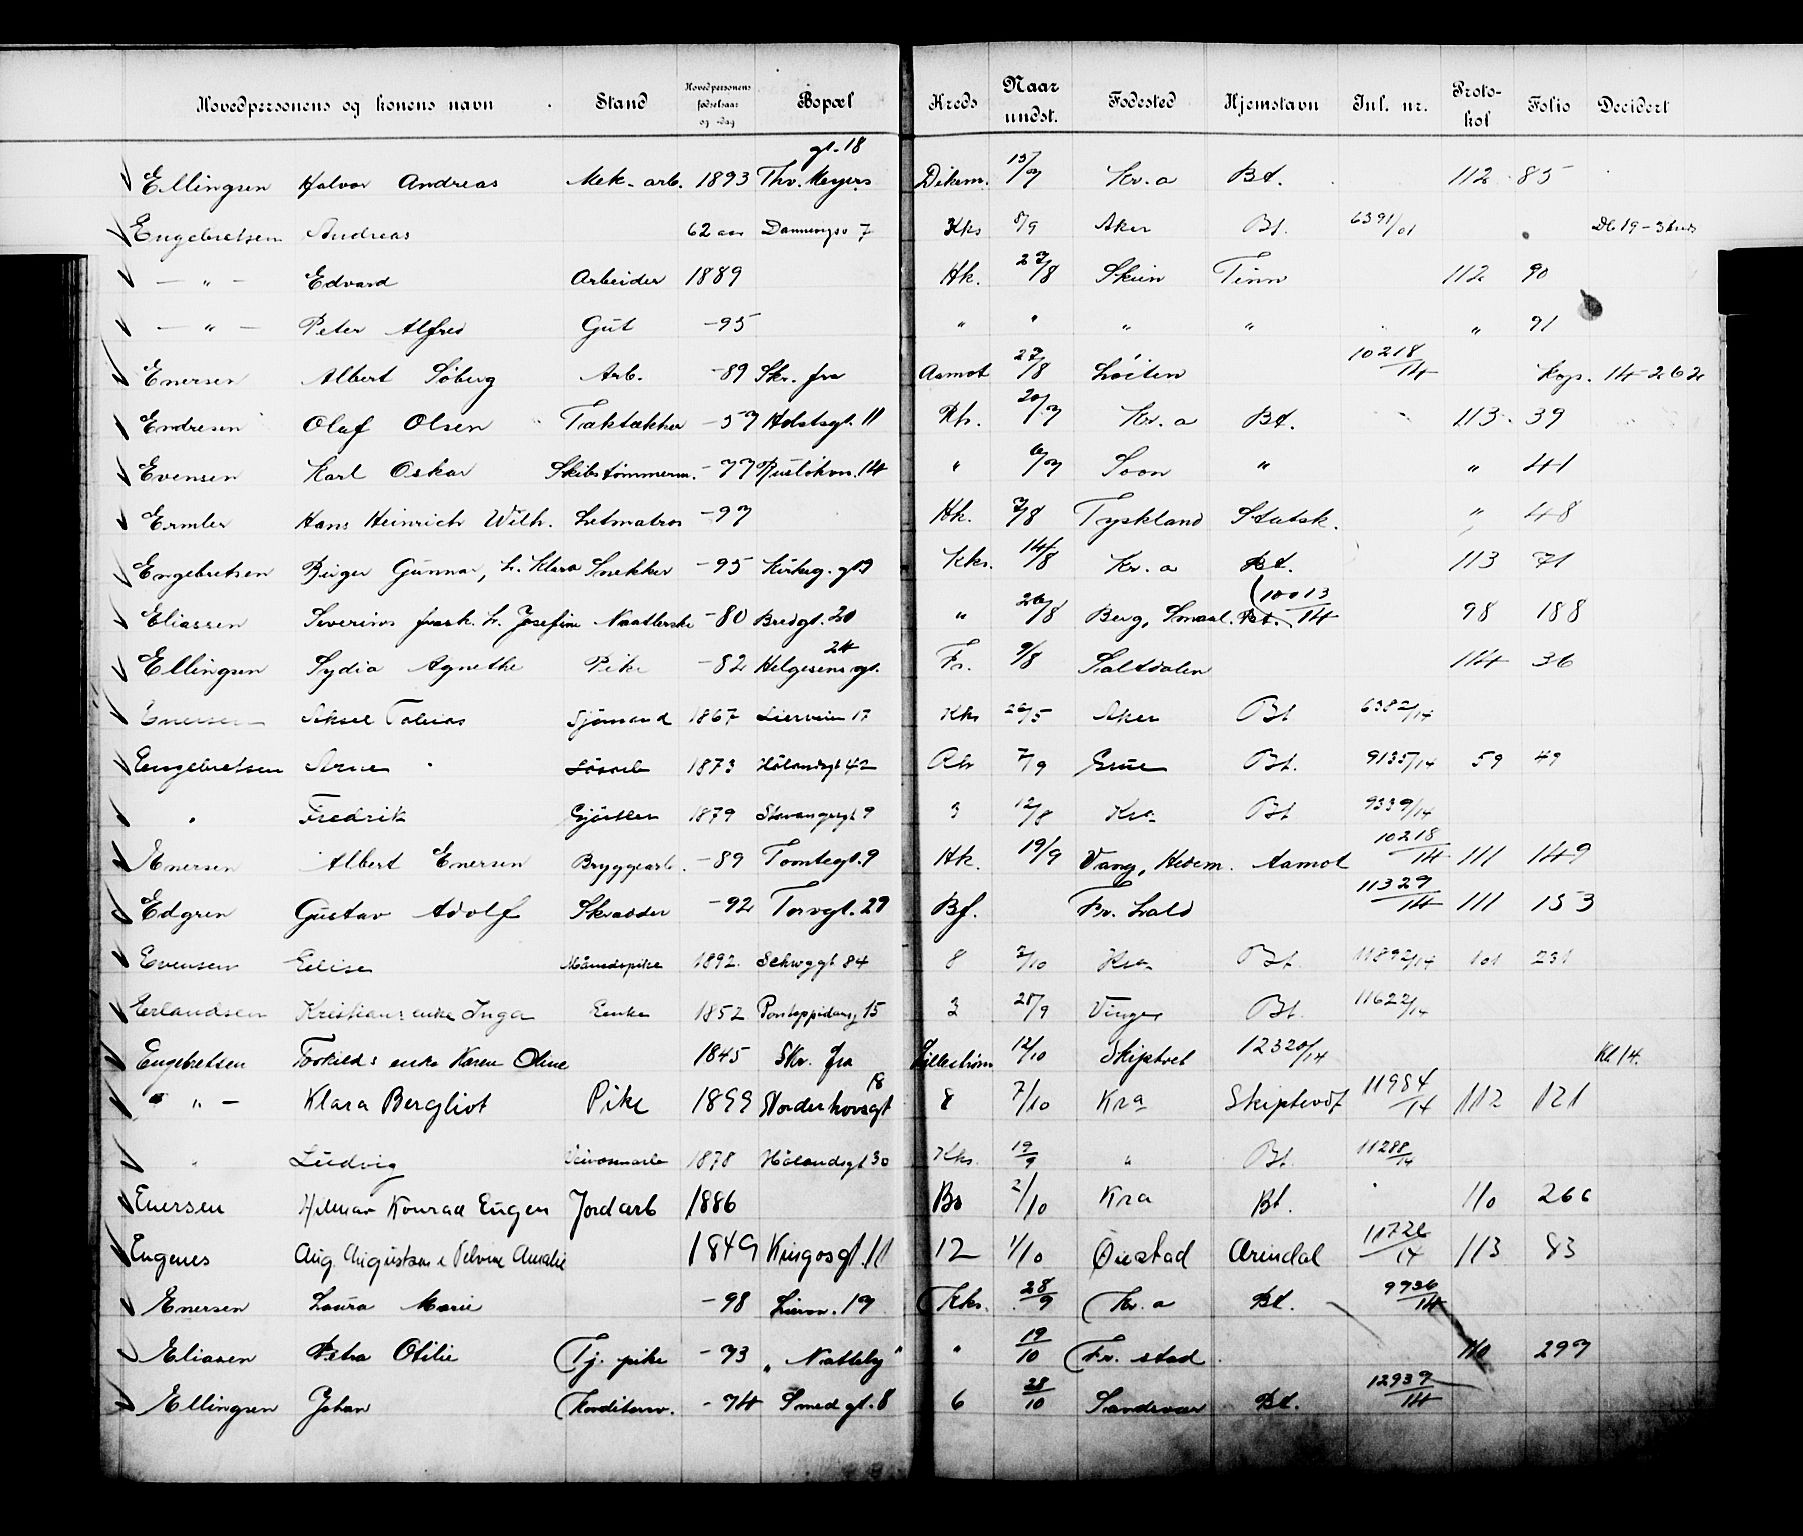 Hovedpersonens og konens navn Stand Hovedpersonens fødselsaar og -dag Bopæl Kreds Naar undst. Fødested Hjemstavn Inl. nr. Proto-kol Folio Decidert
Ellingsen Halvor Andreas Mek. arb. 1893 Thv. Meyers gt. 18 Dikem. 13/7 Kr.a Bt. 112 85
Engebretsen Andreas 62 aar 7 Kks 8/9 Aker Bt. 6391/01
— " — Edvard Arbeider 1889 Hk. 27/8 Skien Tinn 112 90
— " — Peter Alfred Gut -95 " " " " " 91
Enersen Albert Søberg Arb. -89 Skr. fra Aamot 27/8 Løiten 10218/14 Kop. 14-262
Endresen Olaf Olsen Taktækker -57 Holstsgt. 11 Rh. 20/7 Kr.a Bt. 113 39
Evensen Karl Oskar Skibstømmerm. -77 Ruseløkvn. 14 " 6/7 Soon " " 41
Ermler Hans Heinrich Wilh. Letmatros -97 Hk. 7/8 Tyskland Statsk. " 48
Engebretsen Birger Gunnar, h. Klara Snekker -95 Kirkeg. gt 9 Kks. 14/8 Kr.a Bt. 113 71
Eliassen Severins frask. h. Josefine Naatlerske -80 Bredgt. 20 " 26/8 Berg, Smaal. Bt. (10013/14 98 188
Ellingsen Lydia Agnethe Pike -82 Helgesens gt. 24 Fr. 9/8 Saltdalen 114 36
Enersen Aksel Tobias Sjømand 1867 Lierveien 17 Kks 26/5 Aker Bt 6382/14
Engebretsen Arne Løsarb 1873 Hølandsgt 42 7/9 Grue Bt. 9135/14 59 49
" Fredrik Gjørtler 1879 Stavangergt 9 3 12/8 Kra Bt 9339/14
Enersen Albert Enersen Bryggearb. -89 Tomtegt. 9 Hk. 19/9 Vang, Hedem. Aamot 10218/14 111 149
Edgren Gustav Adolf Skrædder -92 Torvgt. 29 Bf. Fr. hald 11329/14 111 153
Evensen Elise Månedspike 1892 Schwggt 84 8 2/10 Kra Bt 11892/14 101 231
Erlandsen Kristians enke Inga Enke 1852 Pontoppidansg 15 3 28/9 Vinger Bt. 11622/14
Engebretsen Torkilds enke Karen Oline 1845 Skr. fra Lillestrøm 12/10 Skiptvet 12320/14 Kl 14.
" — Klara Bergliot Pike 1899 Norderhovsgt 18 8 7/10 Kra Skiptvedt 11984/14 112 121
" Ludvig 1878 Hølandsgt 30 Kks. 19/9 " Bt. 11288/14
Enersen Hilmar Konrad Eugen Jordarb 1886 Bo 2/10 Kra Bt. 110 266
Engenes Aug Augustsen e Pelvine Amalie 1849 Kingosgt. 11 12 1/10 Øiestad Arendal 11726/14 113 83
Enersen Laura Marie -98 Lierv. 17 Kks. 28/9 Kr.a Bt. 9736/14
Eliasen Petra Otilie Tj. pike -93 „ Natteby" " 19/10 Fr. stad 110 297
Ellingsen Johan Konditorsv. -74 Smedgt. 8 6 28/10 Sandsvær Bt. 12939/14